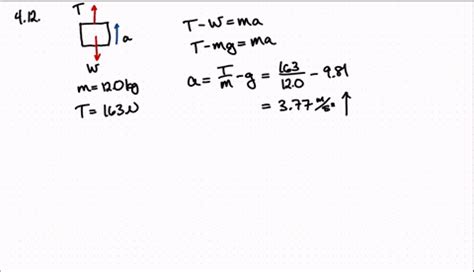 4.12.
T
a
W
m=12.0kg
T=163N
T-W=ma
T-mg=ma
a= T/m -g = 163/12.0 - 9.81
= 3.77 m/s² ↑